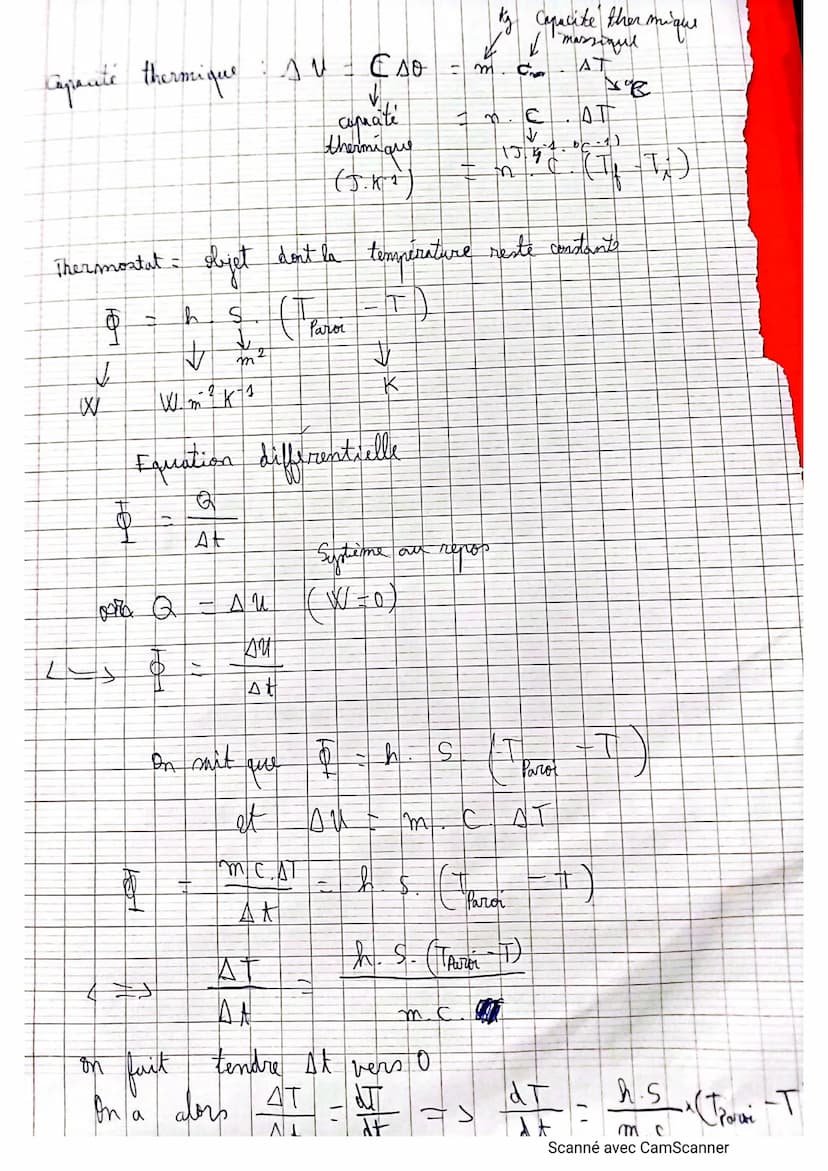 Kg Capacité thermique
massique
Capacité thermique : ΔU = C Δθ = m . Cm . ΔT
↓ ↘ °C
capacité = n . C . ΔT
thermique ↓
(J.K⁻¹) (J.kg⁻¹.°C⁻¹)
= n . C . (Tf - Ti)
Thermostat = objet dont la température reste constante
Φ = h . S . (TParoi - T)
↓ ↓ ↓ m² ↓
W W.m⁻².K⁻¹ K
Equation différentielle
Φ = Q / Δt
Système au repos
Q = ΔU (W=0)
<=> Φ = ΔU / Δt
On sait que Φ = h . S . (TParoi - T)
et ΔU = m . C . ΔT
Φ = m C.ΔT / Δt = h . S . (TParoi - T)
<=> ΔT / Δt = h . S . (TParoi - T) / m . C .
on fait tendre Δt vers 0
On a alors ΔT / Δt = dT / dt => dT / dt = h.S / m c × (TParoi - T
Scanné avec CamScanner